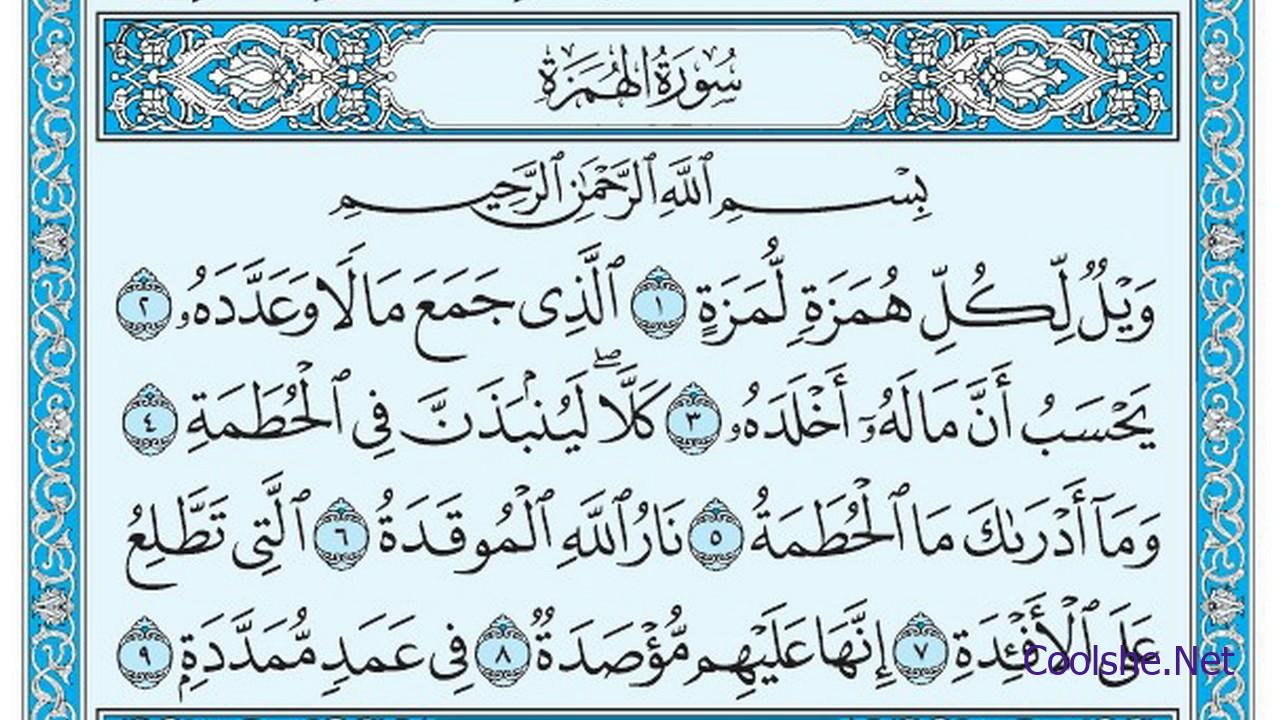 سُورَةُ الهُمَزَةِ
بِسْمِ ٱللَّهِ ٱلرَّحْمَٰنِ ٱلرَّحِيمِ
وَيْلٌ لِّكُلِّ هُمَزَةٍ لُّمَزَةٍ ١ ٱلَّذِى جَمَعَ مَالًا وَعَدَّدَهُۥ ٢
يَحْسَبُ أَنَّ مَالَهُۥٓ أَخْلَدَهُۥ ٣ كَلَّا ۖ لَيُنۢبَذَنَّ فِى ٱلْحُطَمَةِ ٤
وَمَآ أَدْرَىٰكَ مَا ٱلْحُطَمَةُ ٥ نَارُ ٱللَّهِ ٱلْمُوقَدَةُ ٦ ٱلَّتِى تَطَّلِعُ
عَلَى ٱلْأَفْـِٔدَةِ ٧ إِنَّهَا عَلَيْهِم مُّؤْصَدَةٌ ٨ فِى عَمَدٍ مُّمَدَّدَةٍۭ ٩
Coolshe.Net